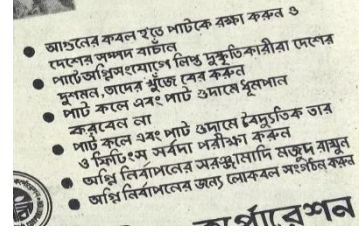 আগুনের কবল হতে পাটকে রক্ষা করুন ও
দেশের সম্পদ বাচাঁন
পাটে অগ্নিসংযোগে লিপ্ত দুষ্কৃতিকারীরা দেশের
দুশমন, তাদের খুঁজে বের করুন
পাট কলে এবং পাট গুদামে ধূমপান
করবেন না
পাট কলে এবং পাট গুদামে বৈদ্যুতিক তার
ও ফিটিংস সর্বদা পরীক্ষা করুন
অগ্নি নির্বাপনের সরঞ্জামাদি মজুদ রাখুন
অগ্নি নির্বাপনের জন্যে লোকবল সংগঠন করুন